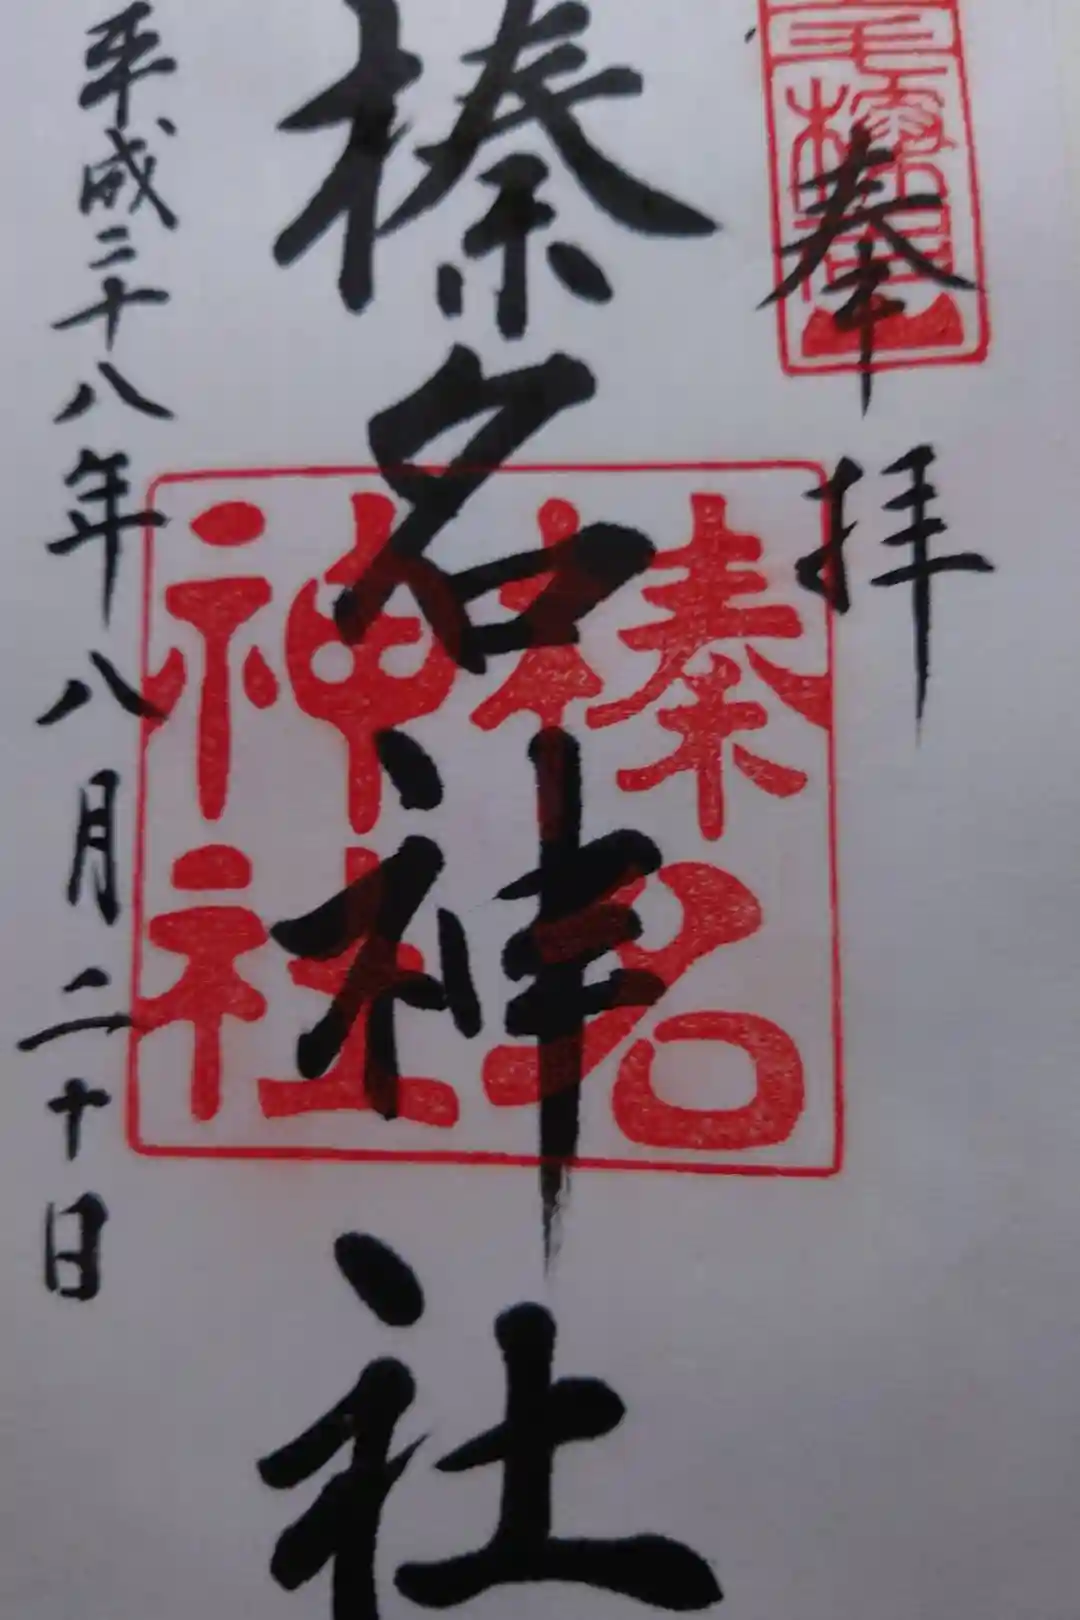 奉拝
榛名神社
榛名
神社
平成二十八年八月二十日